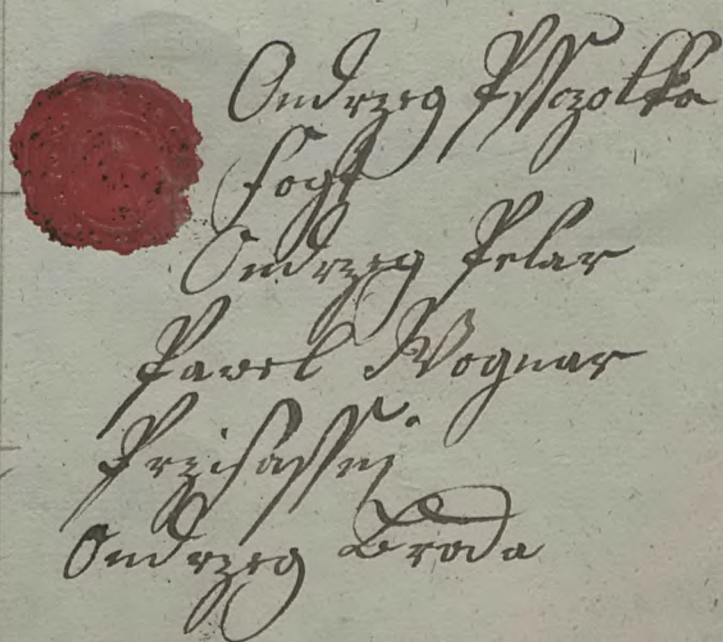 Ondrzeg Pssczolka
Fogt
Ondrzeg Pelar
Pavel Wognar
Przisassnj
Ondrzeg Broda